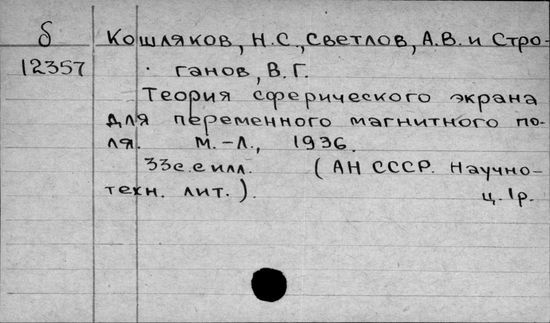 б Кошляков, Н.С., Светлов, А.В. и Стро-
12357 ганов, В.Г.
Теория сферического экрана
для переменного магнитного по-
ля. М.-Л., 1936.
33с. с илл. (АН СССР. Научно-
техн. лит.). ц. 1р.